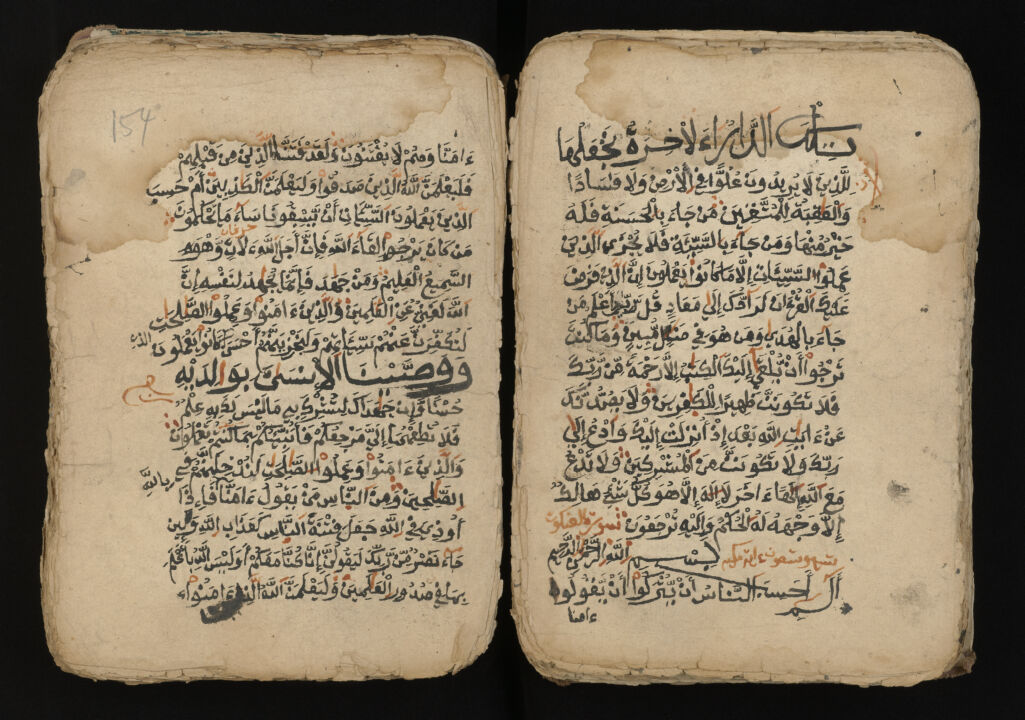 تلك الدار الاخرة نجعلها
للذين لا يريدون علوا في الارض ولا فسادا
والعقبة للمتقين من جاء بالحسنة فله
خير منها ومن جاء بالسيئة فلا يجزى الذين
عملوا السيئات الا ما كانوا يعملون ان الذي فرض
عليك القرءان لرادك الى معاد قل ربي اعلم من
جاء بالهدى ومن هو في ضلل مبين وما كنت
ترجوا أن يلقى إليك الكتب إلا رحمة من ربك
فلا تكونن ظهيرا للكفرين ولا يصدنك
عن ءايت الله بعد إذ أنزلت إليك وادع إلى
ربك ولا تكونن من المشركين ولا تدع
مع الله إلها ءاخر لا إله إلا هو كل شيء هالك
إلا وجهه له الحكم وإليه ترجعون
بسم الله الرحمن الرحيم
الم أحسب الناس أن يتركوا أن يقولوا
ءامنا
154
ءامنا وهم لا يفتنون ولقد فتنا الذين من قبلهم
فليعلمن الله الذين صدقوا وليعلمن الكذبين أم حسب
الذين يعملون السيئات أن يسبقونا ساء ما يحكمون
من كان يرجوا لقاء الله فإن أجل الله لات وهو
السميع العليم ومن جهد فإنما يجهد لنفسه إن
الله لغني عن العلمين والذين ءامنوا وعملوا الصلحت
لنكفرن عنهم سيئاتهم ولنجزينهم أحسن الذي كانوا يعملون
ووصينا الإنسن بوالديه
حسنا وإن جهداك لتشرك بي ما ليس لك به علم
فلا تطعهما إلي مرجعكم فأنبئكم بما كنتم تعملون
والذين ءامنوا وعملوا الصلحت لندخلنهم في
الصلحين ومن الناس من يقول ءامنا بالله فإذا
أوذي في الله جعل فتنة الناس كعذاب الله ولئن
جاء نصر من ربك ليقولن إنا كنا معكم أو ليس الله بأعلم
بما في صدور العلمين وليعلمن الله الذين ءامنوا